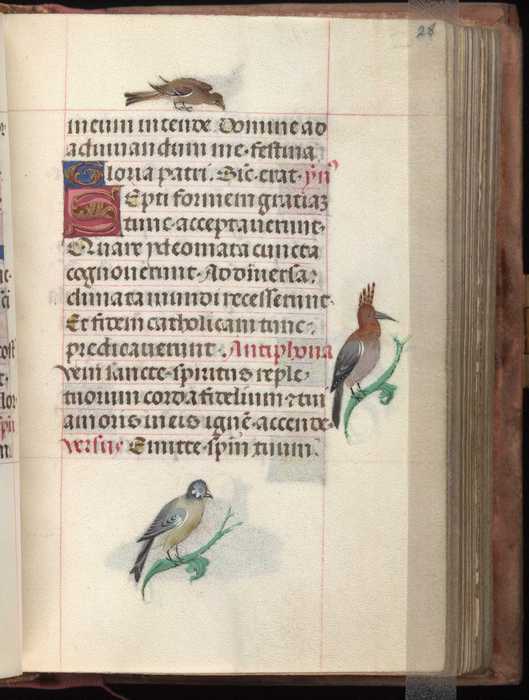 28
meum intende. Domine ad
adiuuandum me festina
Gloria patri. Sic. erat. yn̄
Septi formem gratiaz
tunc acceptauerunt.
Quare ydeomata cuncta
cognouerunt. Ad diuersa.
climata mundi recesserunt.
Et fidem catholicam tunc.
predicauerunt. Antiphona
veni sancte spiritus reple
tuorum corda fidelium ⁊ tui
amoris in eis ignē accende.
versus Emitte spm̄ tuum.